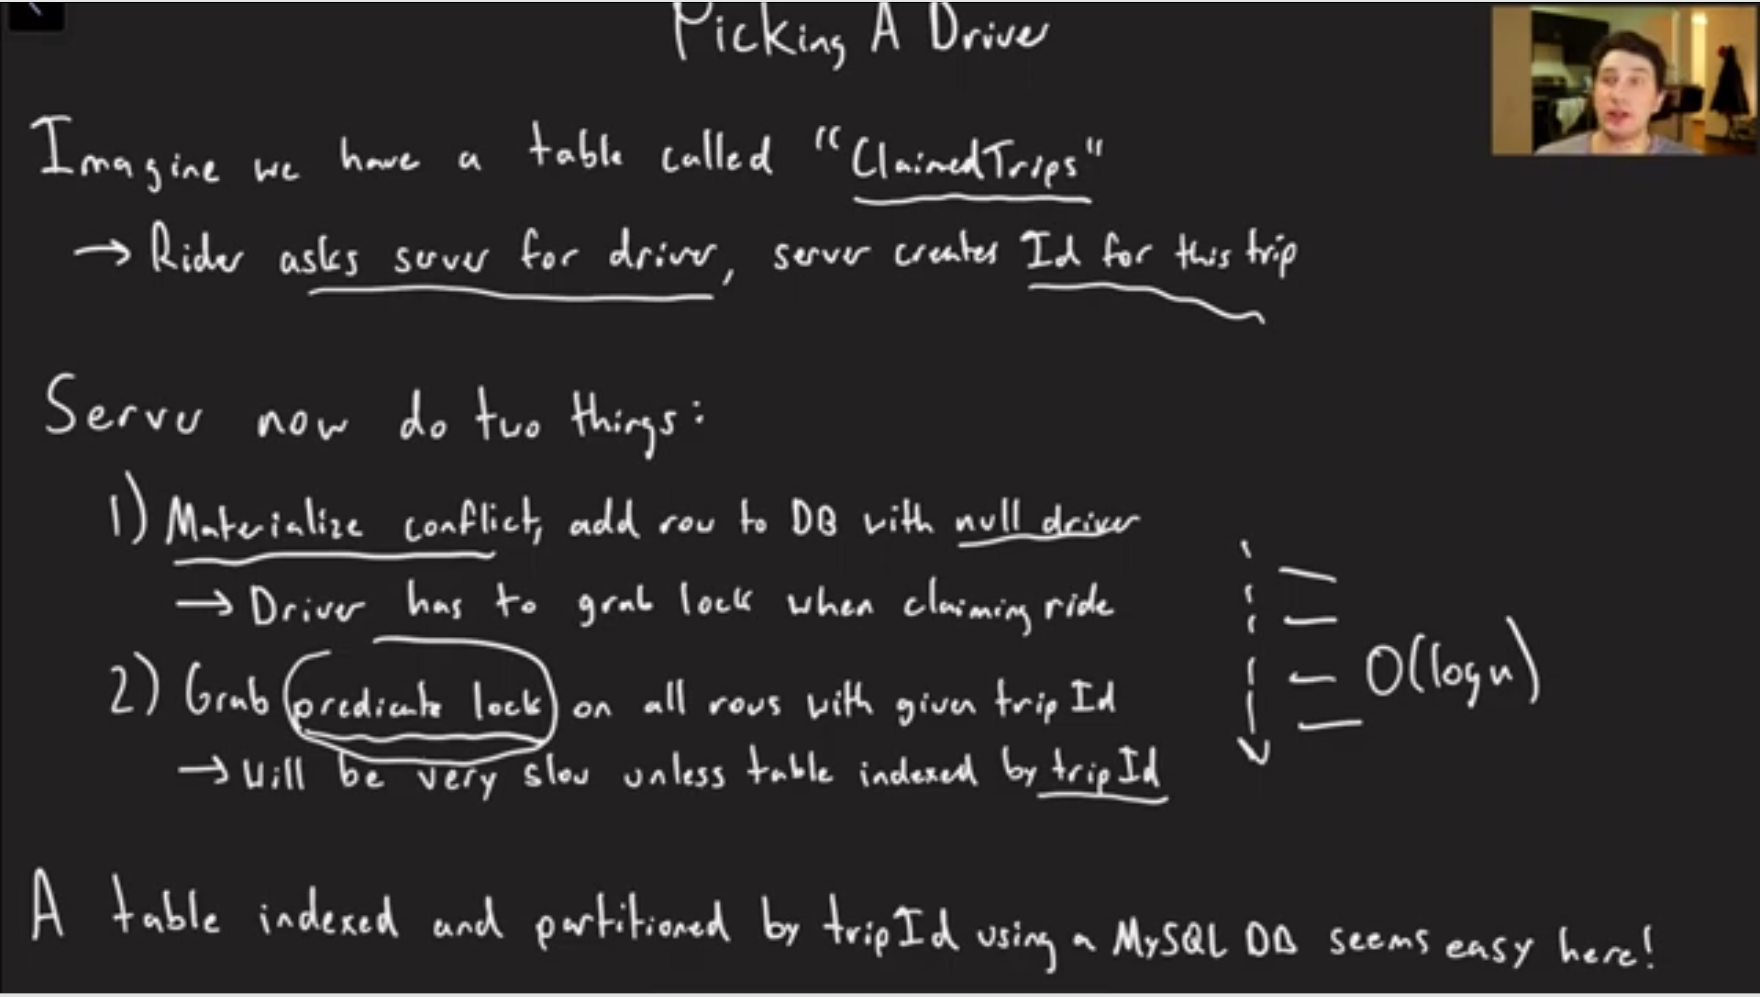 Picking A Driver
Imagine we have a table called "ClaimedTrips"
→ Rider asks server for driver, server creates Id for this trip
Server now do two things:
1) Materialize conflict, add row to DB with null driver
→ Driver has to grab lock when claiming ride
2) Grab predicate lock on all rows with given trip Id
→ Will be very slow unless table indexed by trip Id
O(log n)
A table indexed and partitioned by trip Id using a MySQL DB seems easy here!